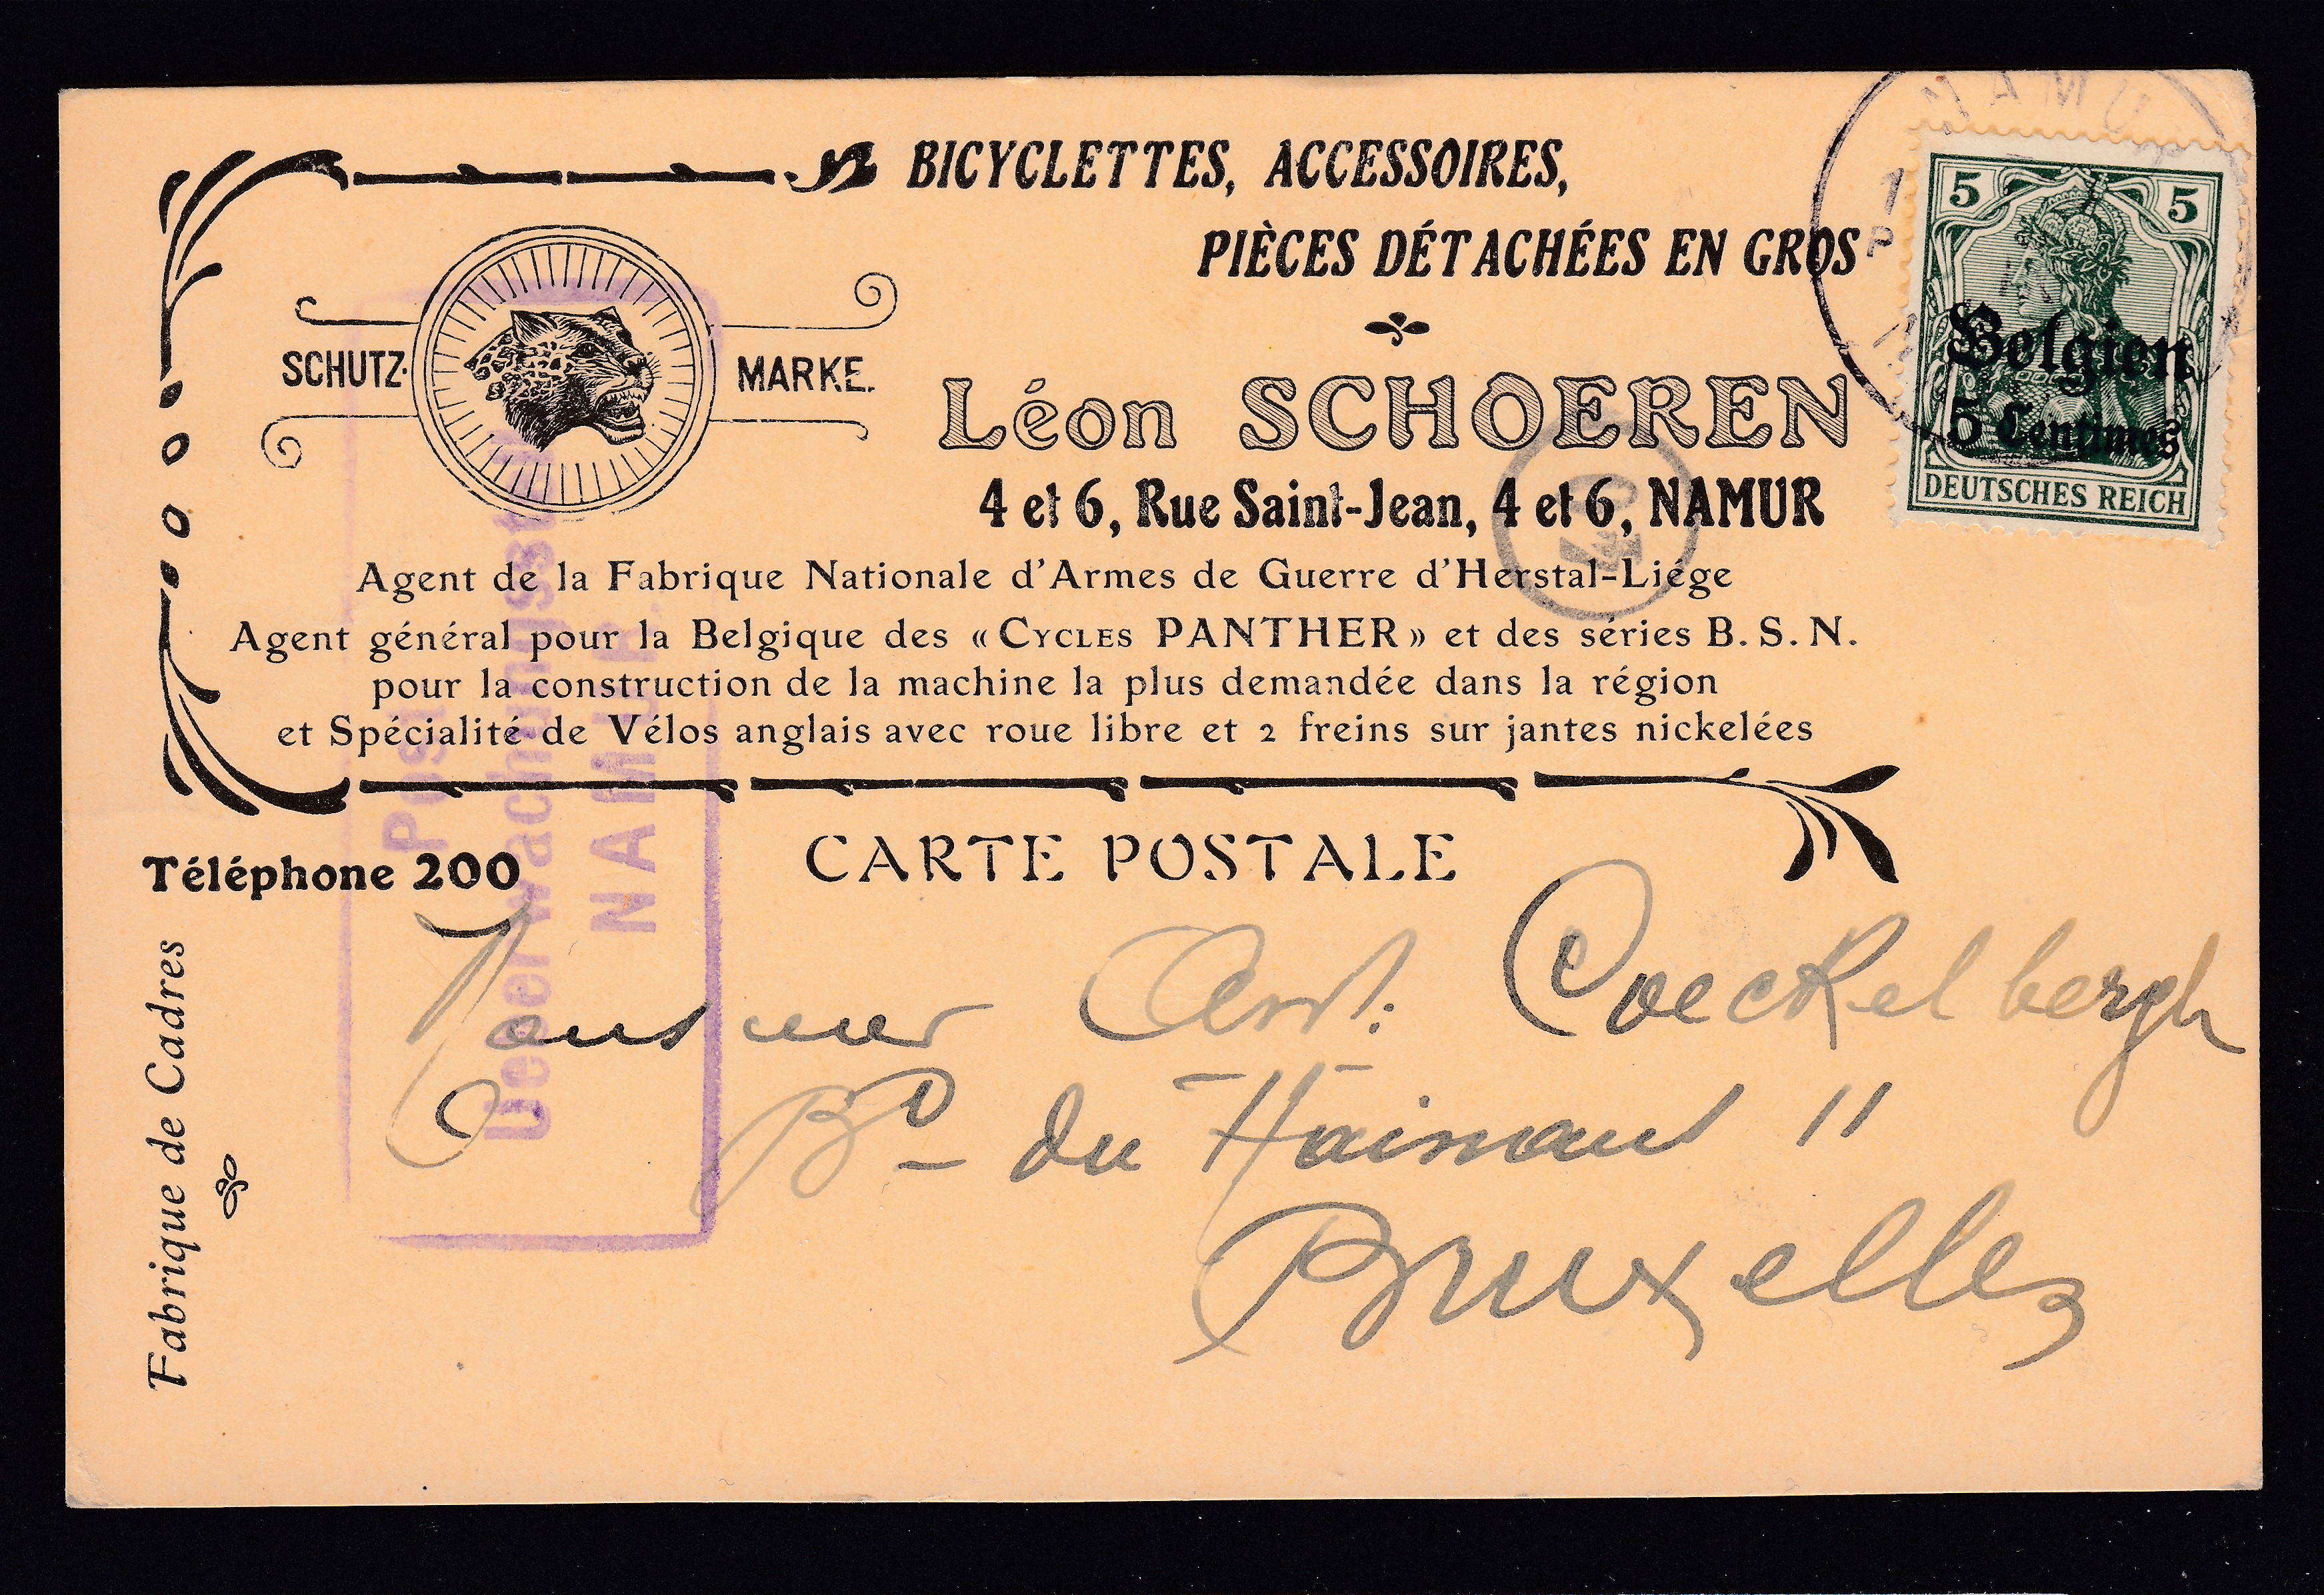 BICYCLETTES, ACCESSOIRES,
PIÈCES DÉTACHÉES EN GROS
SCHUTZ-MARKE.
Léon SCHOEREN
4 et 6, Rue Saint-Jean, 4 et 6, NAMUR
Agent de la Fabrique Nationale d'Armes de Guerre d'Herstal-Liége
Agent général pour la Belgique des « CYCLES PANTHER » et des séries B. S. N.
pour la construction de la machine la plus demandée dans la région
et Spécialité de Vélos anglais avec roue libre et 2 freins sur jantes nickelées
5 5
Belgien
5 Centimes
DEUTSCHES REICH
Téléphone 200
CARTE POSTALE
Fabrique de Cadres
Post
NAMUR
Monsieur Coeckelbergh
Bd du Hainaut 11
Bruxelles